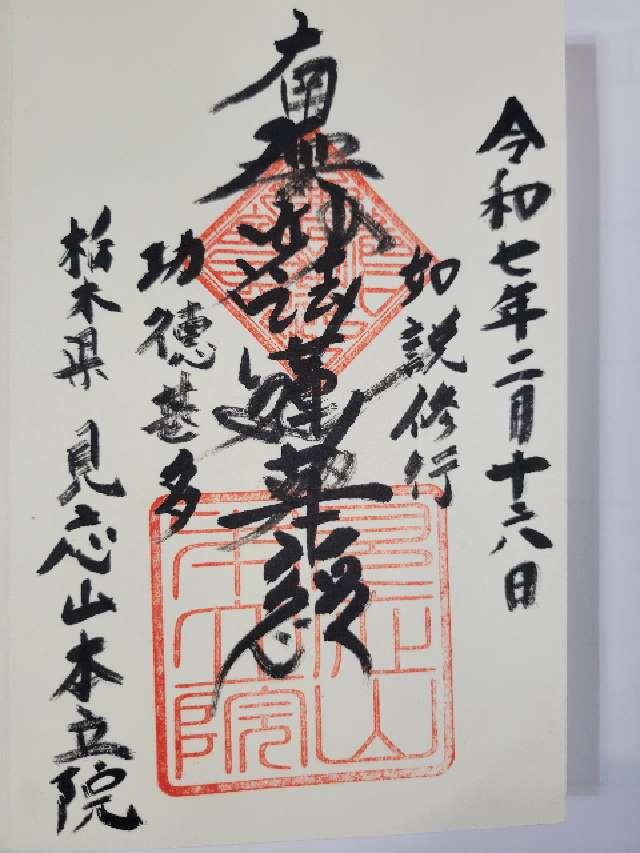 令和七年二月十六日
如説修行
南無妙法蓮華経
功徳甚多
栃木県 見応山本立院